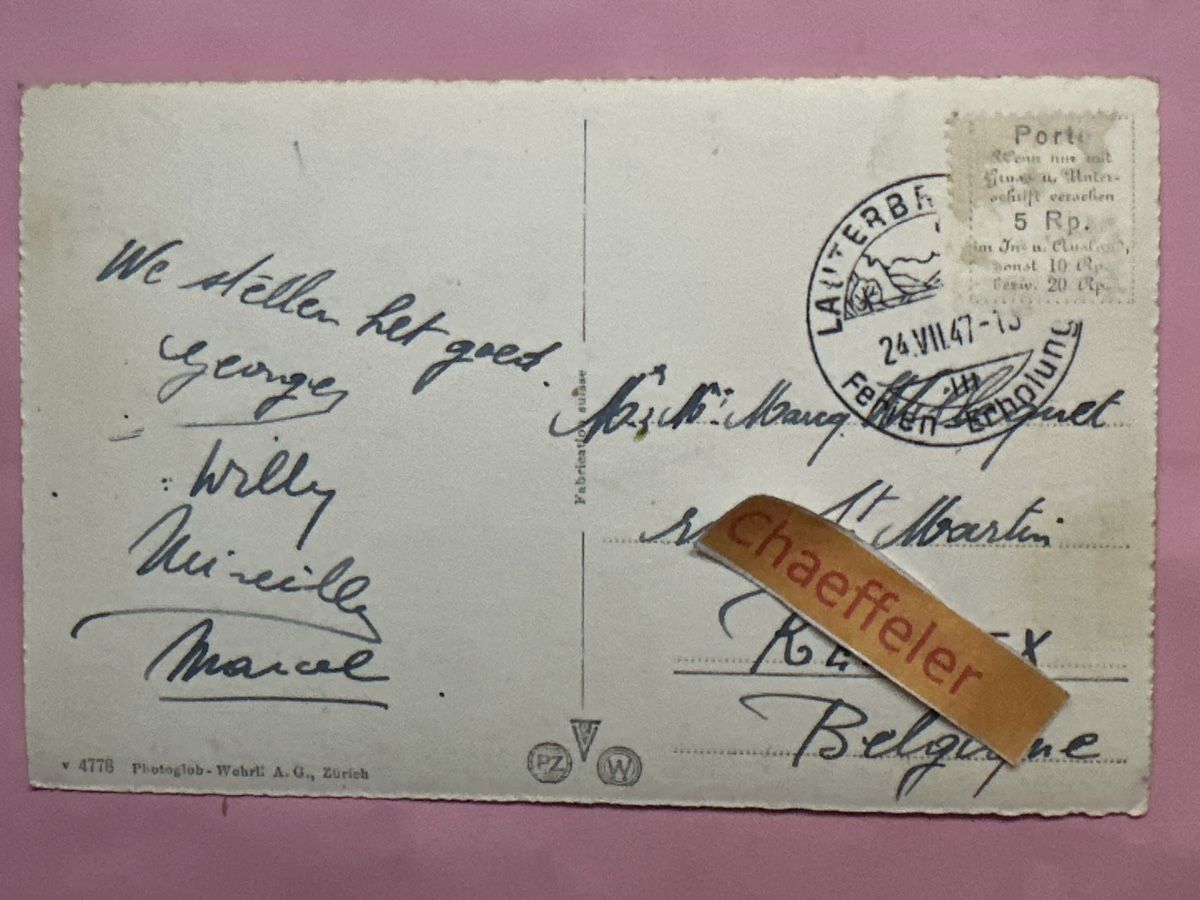 We stellen het goed.
Georges
Willy
Mireille
Marcel
v 4778 Photoglob-Wehrli A. G., Zürich
Fabrication suisse
PZ
W
Porto
Wenn nur mit
Gruss u. Unter-
schrift versehen
5 Rp.
im In- u. Ausland,
sonst 10 Rp.
bezw. 20 Rp.
LAUTERBR
24.VII.47-1
Ferien Erholung
Mr & Me Marcq
St Martin
chaeffeler
X
Belgique